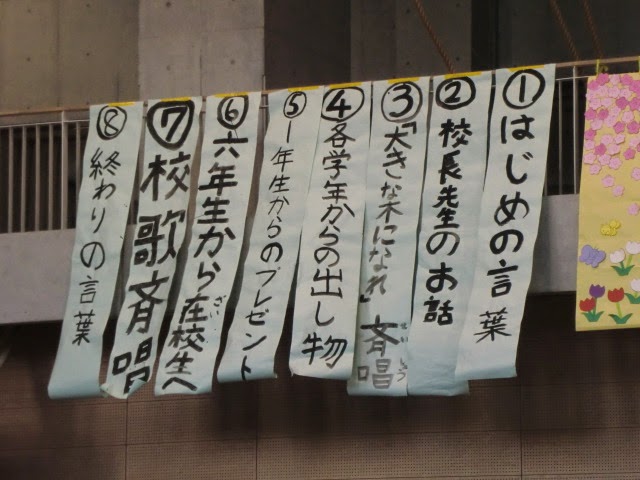 ①はじめの言葉
②校長先生のお話
③「大きな木になれ」斉唱
せいしょう
④各学年からの出し物
⑤1年生からのプレゼント
⑥六年生から在校生へ
ざい
⑦校歌斉唱
⑧終わりの言葉